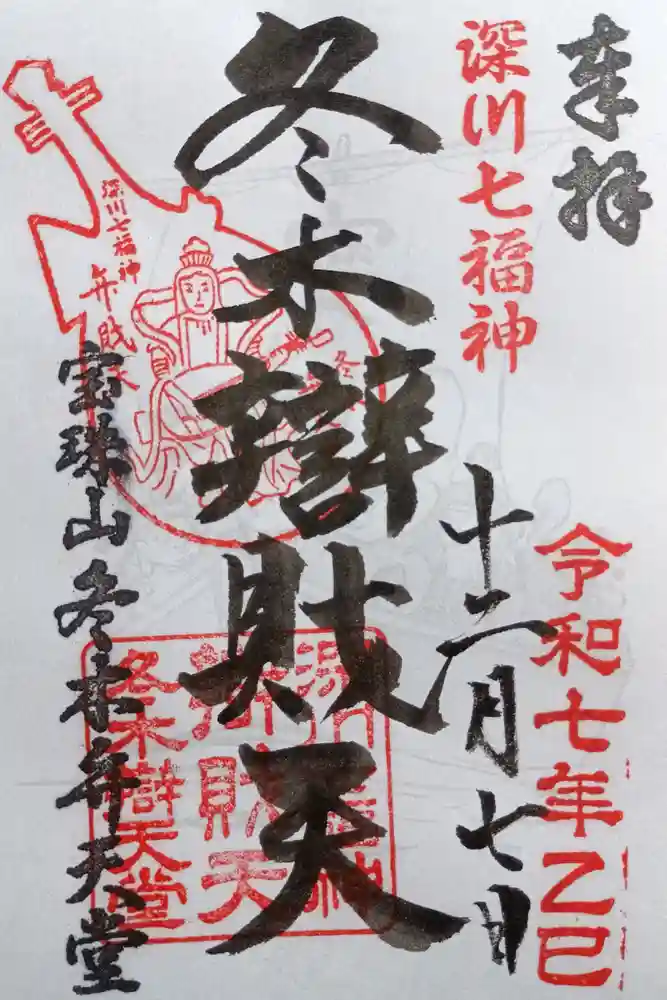 奉拝
深川七福神
令和七年乙巳
十二月七日
冬木辯財天
深川七福神
弁財天
冬
深川七福神
辯財天
冬木辯天堂
宝珠山冬木弁天堂